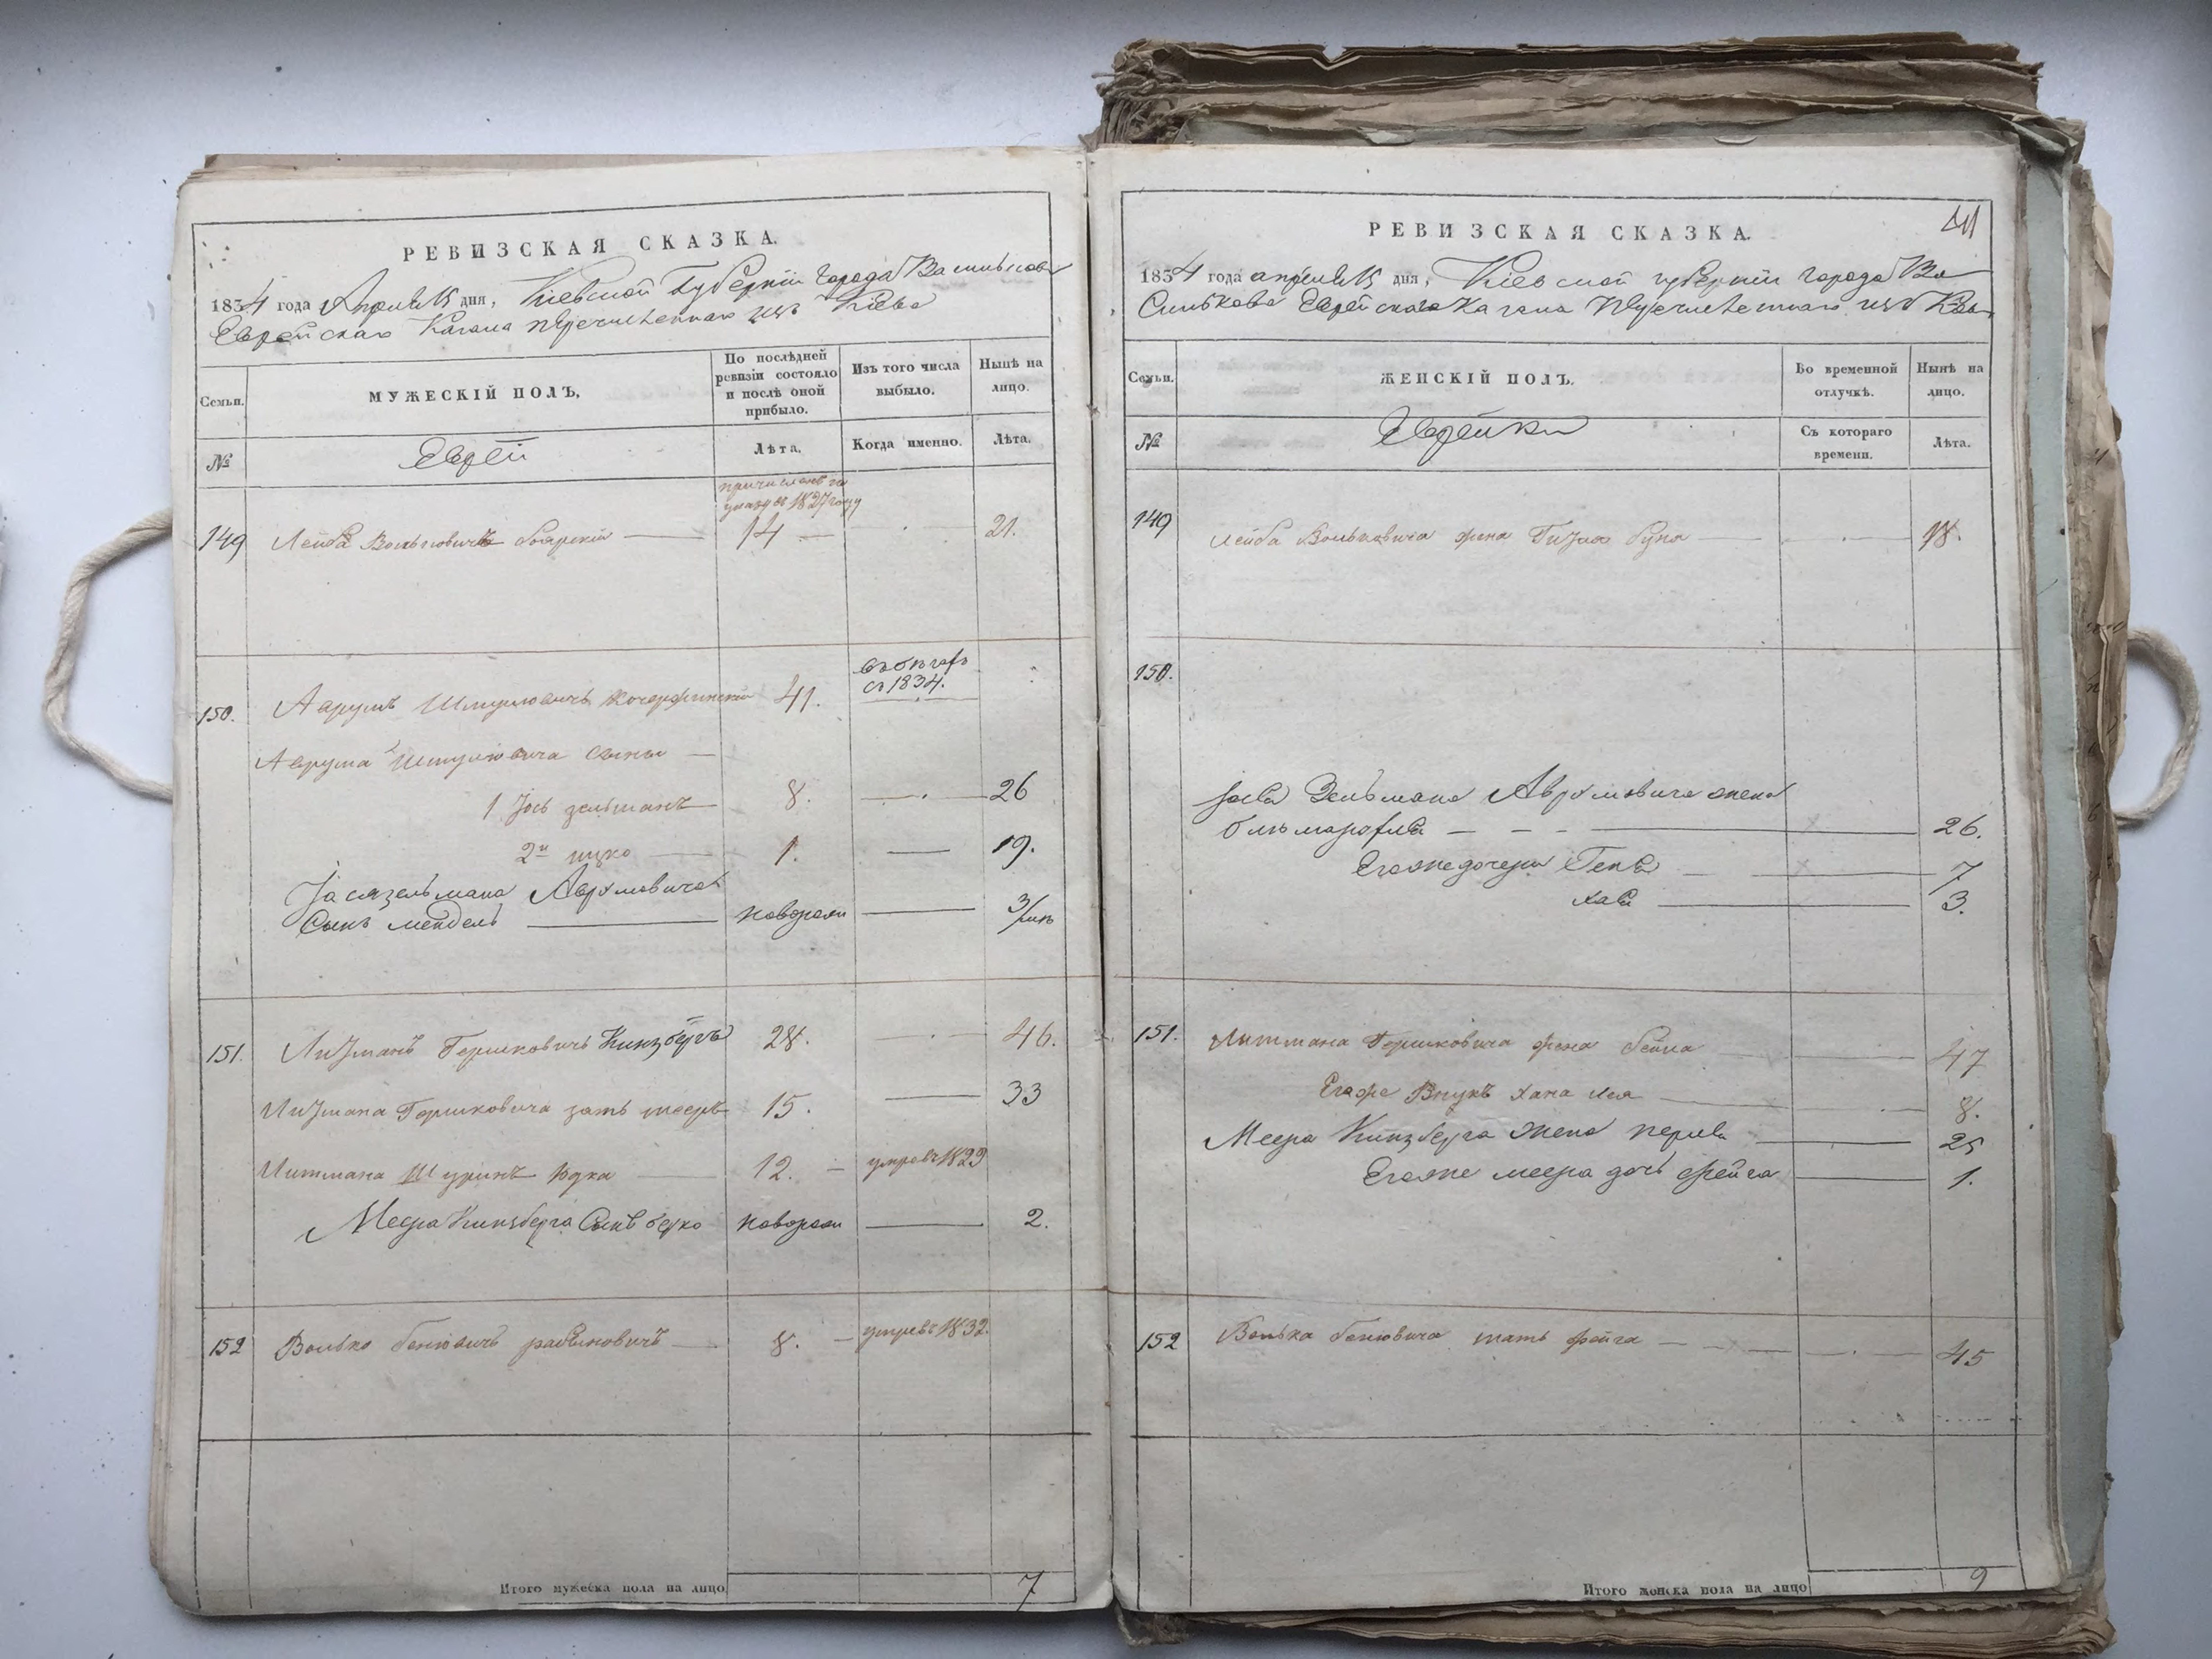 РЕВИЗСКАЯ СКАЗКА.
1834 года Апреля 15 дня, Кіевской Губерніи Города Василькова
Еврейскаго Кагала перечисленнаго изъ Кіева
Семьи.
МУЖЕСКІЙ ПОЛЪ,
По послѣдней ревизіи состояло и послѣ оной прибыло.
Изъ того числа выбыло.
Нынѣ на лицо.
№
Еврей
Лѣта,
Когда именно.
Лѣта.
причисленъ по
указу въ 1827 году
149 Лейба Вольковичъ Боярскій 14 21.
въ бегахъ
съ 1834.
150. Аврумъ Шмулювичъ 41.
Аврума Шмулювича сыны
1 Іось зельманъ 8. 26
2й ицко 1. 19.
Іося зельмана Аврумовича
Сынъ мендель новорожд 3/мѣ
151. Литманъ Гершковичъ Кинзбергъ 28. 46.
Литмана Гершковича зять мееръ 15. 33
Литмана Шуринъ Юдка 12. умре въ 1829
Меера Кинзберга Сынъ берко новорожд 2.
152 Волько бенювичъ рабиновичъ 8. умре въ 1832.
Итого мужеска пола на лицо 7
41
РЕВИЗСКАЯ СКАЗКА.
1834 года апреля 15 дня, Кіевской губерніи города Ва
силькова Еврейскаго Кагала перечисленнаго изъ
Семьи.
ЖЕНСКІЙ ПОЛЪ.
Во временной отлучкѣ.
Нынѣ на лицо.
№
Еврейки
Съ котораго времени.
Лѣта.
149 Лейба Вольковича жена буня 18.
150.
Іося Зельмана Аврумовича жена
26.
Егоже дочери Геня 7
хая 3.
151. Литмана Гершковича жена бейла 47
Егоже Внука хана лея 8.
Меера Кинзберга жена перля 25
Егоже меера дочь фейга 1.
152 Волька бенювича мать фейга 45
Итого женска пола на лицо 9